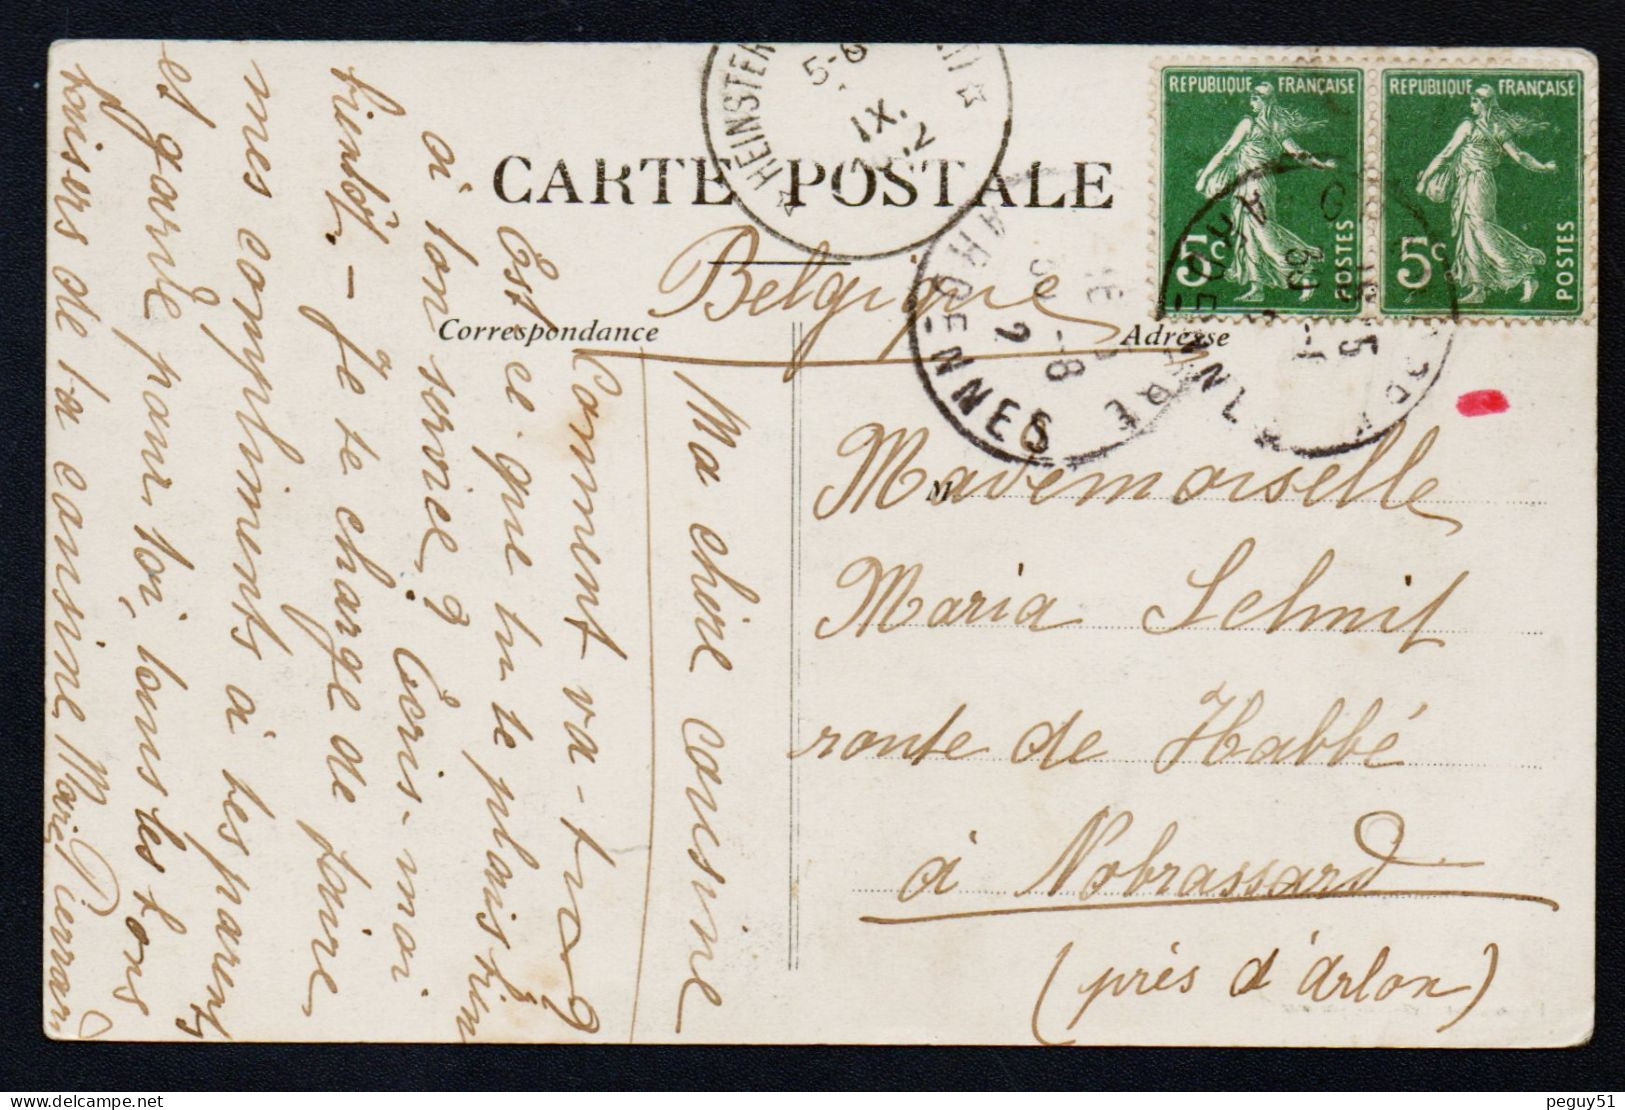 CARTE POSTALE
Belgique
Correspondance
Adresse
REPUBLIQUE FRANÇAISE
5c
POSTES
REPUBLIQUE FRANÇAISE
5c
POSTES
HEINSTER
5-6
IX.
ARDENNES
Ma chère cousine
Comment va-tu?
Est ce que tu te plais bien
à ton service? Ecris-moi
bientôt. - Je te charge de faire
mes compliments à tes parents
et garde pour toi, tous les bons
baisers de ta cousine, Marie Pierrard
M
Mademoiselle
Maria Schmit
route de Habbé
à Nobrassard
(près d'Arlon)
peguy51